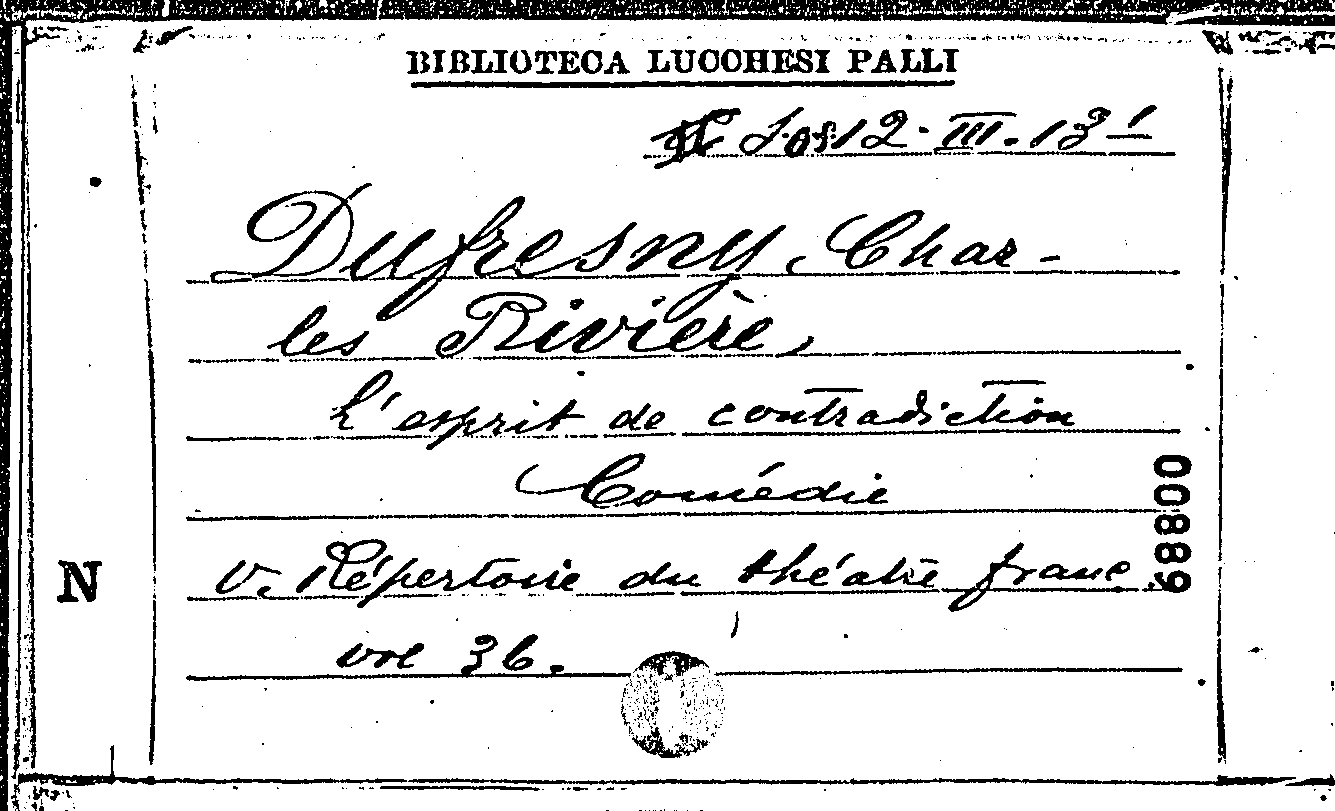 BIBLIOTECA LUCCHESI PALLI
12. III. 13 1
Dufresny, Char-
les Rivière,
L'esprit de contradiction
Comédie
v. Répertoire du théatre franc.
vol 36.
N
68800